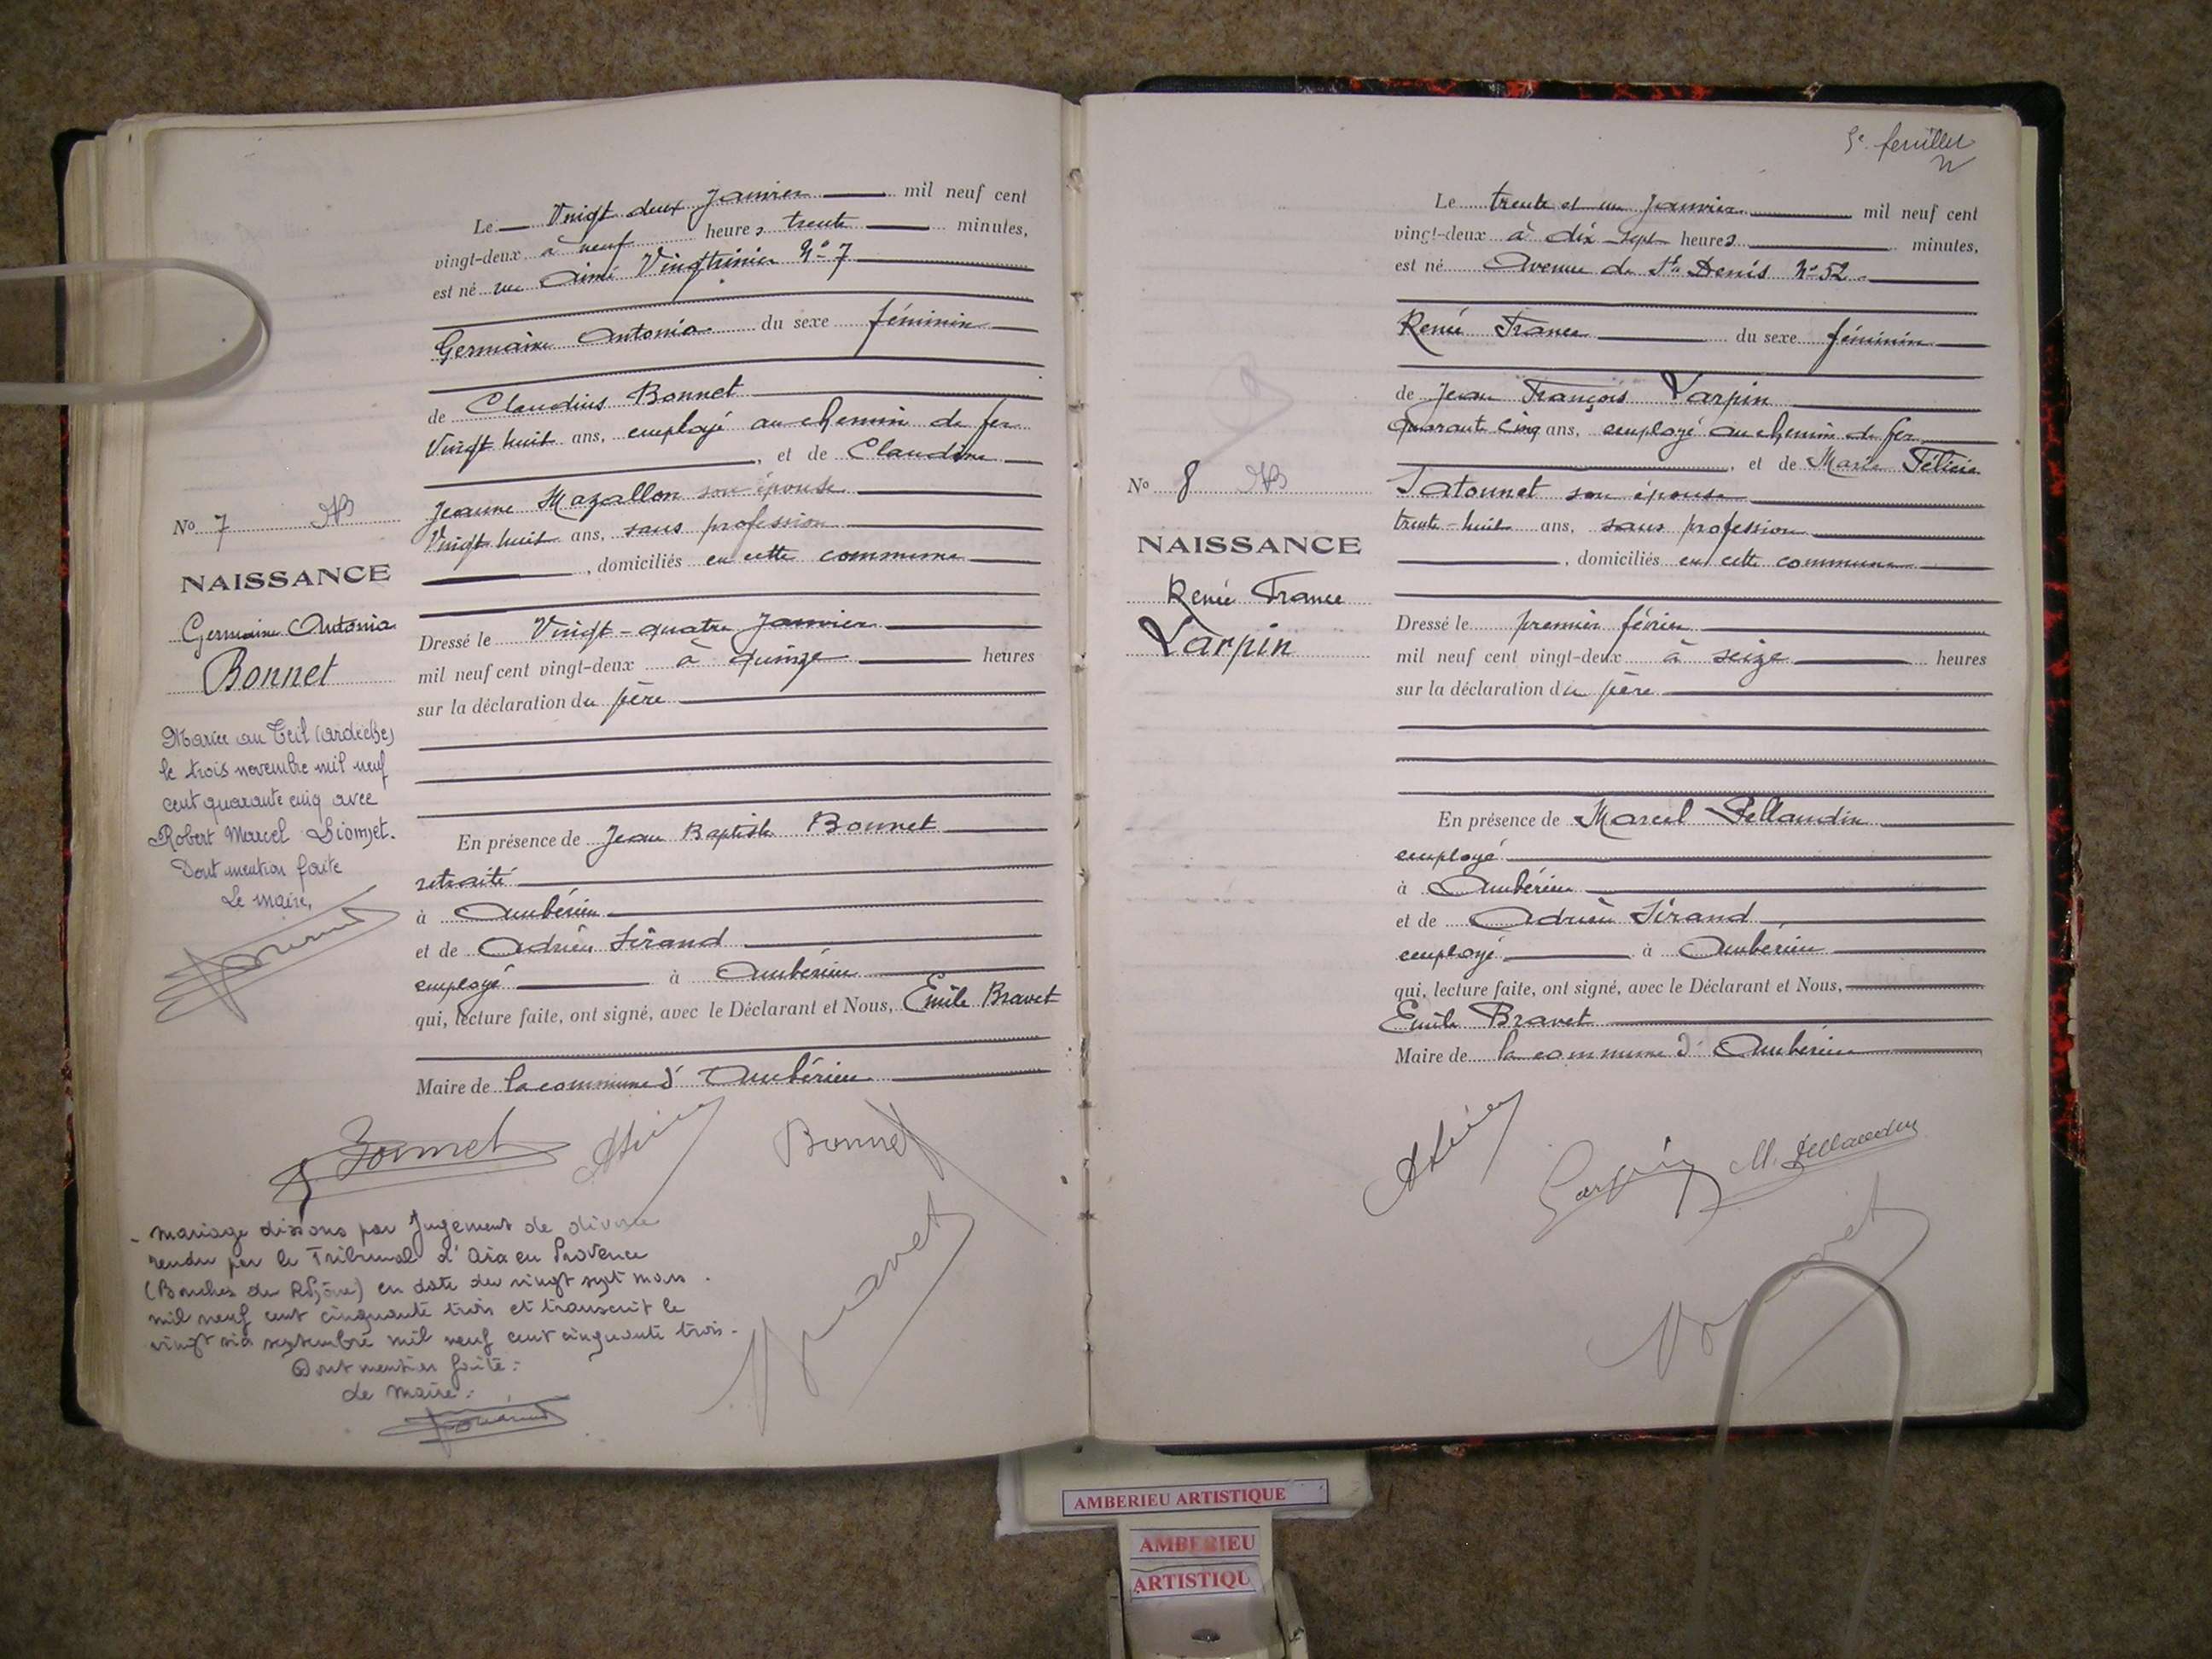 Le vingt deux Janvier mil neuf cent
vingt-deux à neuf heures trente minutes,
est né rue Aimé Vingtrinier N° 7
Germaine Antonia du sexe féminin
de Claudius Bonnet
Vingt huit ans, employé au chemin de fer
, et de Claudine
Jeanne Mazallon son épouse
Vingt huit ans, sans profession
, domiciliés en cette commune
No 7
NAISSANCE
Germaine Antonia
Bonnet
Dressé le Vingt-quatre Janvier
mil neuf cent vingt-deux à quinze heures
sur la déclaration du père
Mariée au Teil (ardèche)
le trois novembre mil neuf
cent quarante cinq avec
Robert Marcel
Dont mention faite
Le maire,
En présence de Jean Baptiste Bonnet
retraité
à Ambérieu
et de Adrien Sérand
employé à Ambérieu
qui, lecture faite, ont signé, avec le Déclarant et Nous, Emile Bravet
Maire de la commune d'Ambérieu
Bonnet
Bonnet
Bravet
- mariage dissous par Jugement de divorce
rendu par le Tribunal d'Aix en Provence
(Bouches du Rhône) en date du vingt sept mars
mil neuf cent cinquante trois et transcrit le
vingt six septembre mil neuf cent cinquante trois -
Dont mention faite :
Le maire :
5e feuillet
Le trente et un Janvier mil neuf cent
vingt-deux à dix-sept heures minutes,
est né Avenue de St Denis N° 52
Renée France du sexe féminin
de Jean François Larpin
quarante cinq ans, employé au chemin de fer
, et de Marie Félicie
Satonnet son épouse
trente-huit ans, sans profession
, domiciliés en cette commune
No 8
NAISSANCE
Renée France
Larpin
Dressé le premier février
mil neuf cent vingt-deux à seize heures
sur la déclaration du père
En présence de Marcel Pellaudin
employé
à Ambérieu
et de Adrien Sérand
employé à Ambérieu
qui, lecture faite, ont signé, avec le Déclarant et Nous,
Emile Bravet
Maire de la commune d'Ambérieu
Larpin
M. Pellaudin
Bravet
AMBERIEU ARTISTIQUE
AMBERIEU
ARTISTIQU